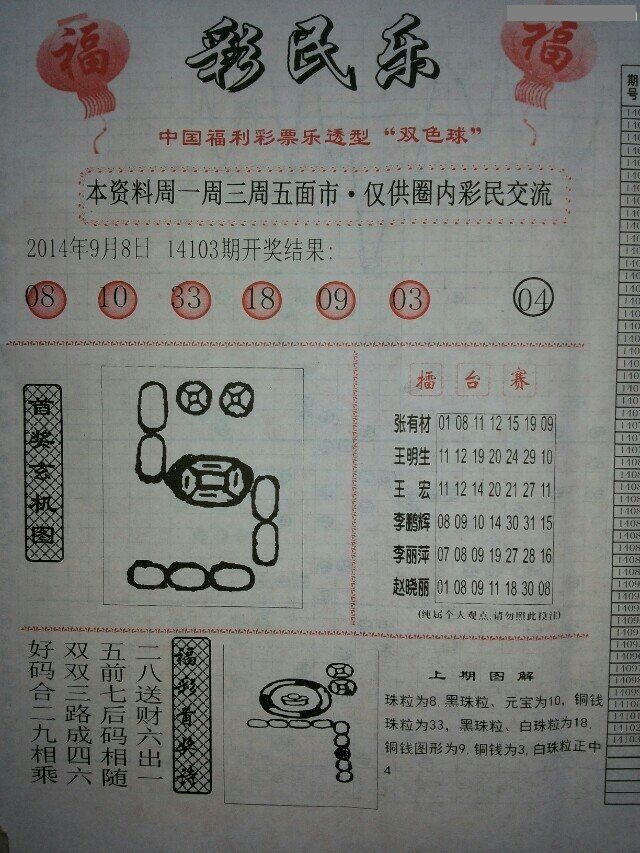 福
彩民乐
福
中国福利彩票乐透型“双色球”
本资料周一周三周五面市·仅供圈内彩民交流
2014年9月8日 14103期开奖结果:
08 10 33 18 09 03 04
首奖玄机图
擂台赛
张有材 01 08 11 12 15 19 09
王明生 11 12 19 20 24 29 10
王宏 11 12 14 20 21 27 11
李鹏辉 08 09 10 14 30 31 15
李丽萍 07 08 09 19 27 28 16
赵晓丽 01 08 09 11 18 30 08
(纯属个人观点,请勿照此投注)
二八送财六出一
五前七后码相随
双双三路成四六
好码合二九相乘
福彩首奖诗
上期图解
珠粒为8.黑珠粒、元宝为10,铜钱
珠粒为33,黑珠粒、白珠粒为18.
铜钱图形为9.铜钱为3,白珠粒正中
4
期号